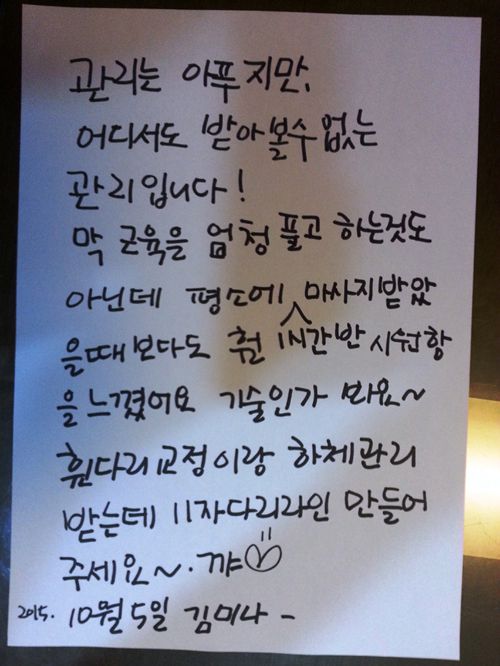 관리는 아푸지만,
어디서도 받아볼수없는
관리입니다!
막 근육을 엄청 풀고 하는것도
아닌데 평소에 마사지받았
을때보다도 훨 1시간반 시원함
을느꼈어요 기술인가 봐요~
휜다리교정이랑 하체관리
받는데 11자다리라인 만들어
주세요~. 꺄♡
2015. 10월 5일 김미나 -